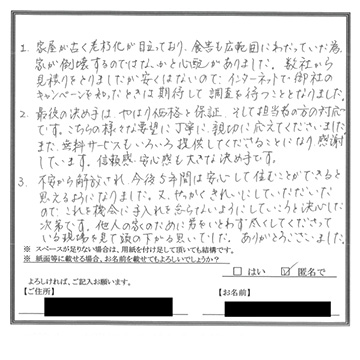 1. 家屋が古く老朽化が目立っており、食害も広範囲にわたっていた為、
家が倒壊するのではないかと心配がありました。数社から
見積りをとりましたが安くはないので、インターネットで御社の
キャンペーンをやったときは期待して調査を待つこととなりました。
2. 最後の決め手は、やはり価格と保証、そして担当者の方の対応
です。こちらの様々な要望に丁寧に、親切に応えてくださいました。
また、無料サービスもいろいろ提供してくださることになり感謝
しています。信頼感、安心感も大きな決め手です。
3. 不安から解放され、今後5年間は安心して住むことができると
思えるようになりました。又、せっかくきれいにしていただいた
ので、これを機会に手入れを怠らないようにしていこうと決心した
次第です。他人の家のために労をいとわず尽くしてくださって
いる現場を見て頭の下がる思いでした。ありがとうございました。
※ スペースが足りない場合は、用紙を付け足して頂いても結構です。
※ 紙面等に載せる場合、お名前を載せてもよろしいでしょうか？
□ はい ☑ 匿名で
よろしければ、ご記入お願います。
【ご住所】 【お名前】